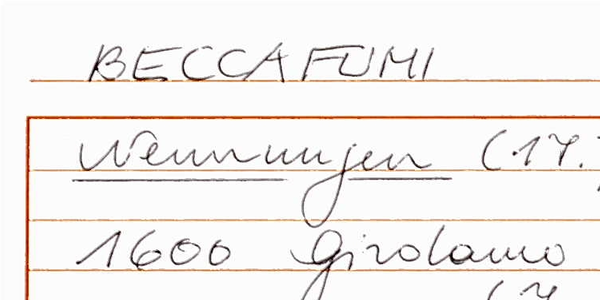 BECCAFUMI
Nennungen (17.
1600 Girolamo
(7